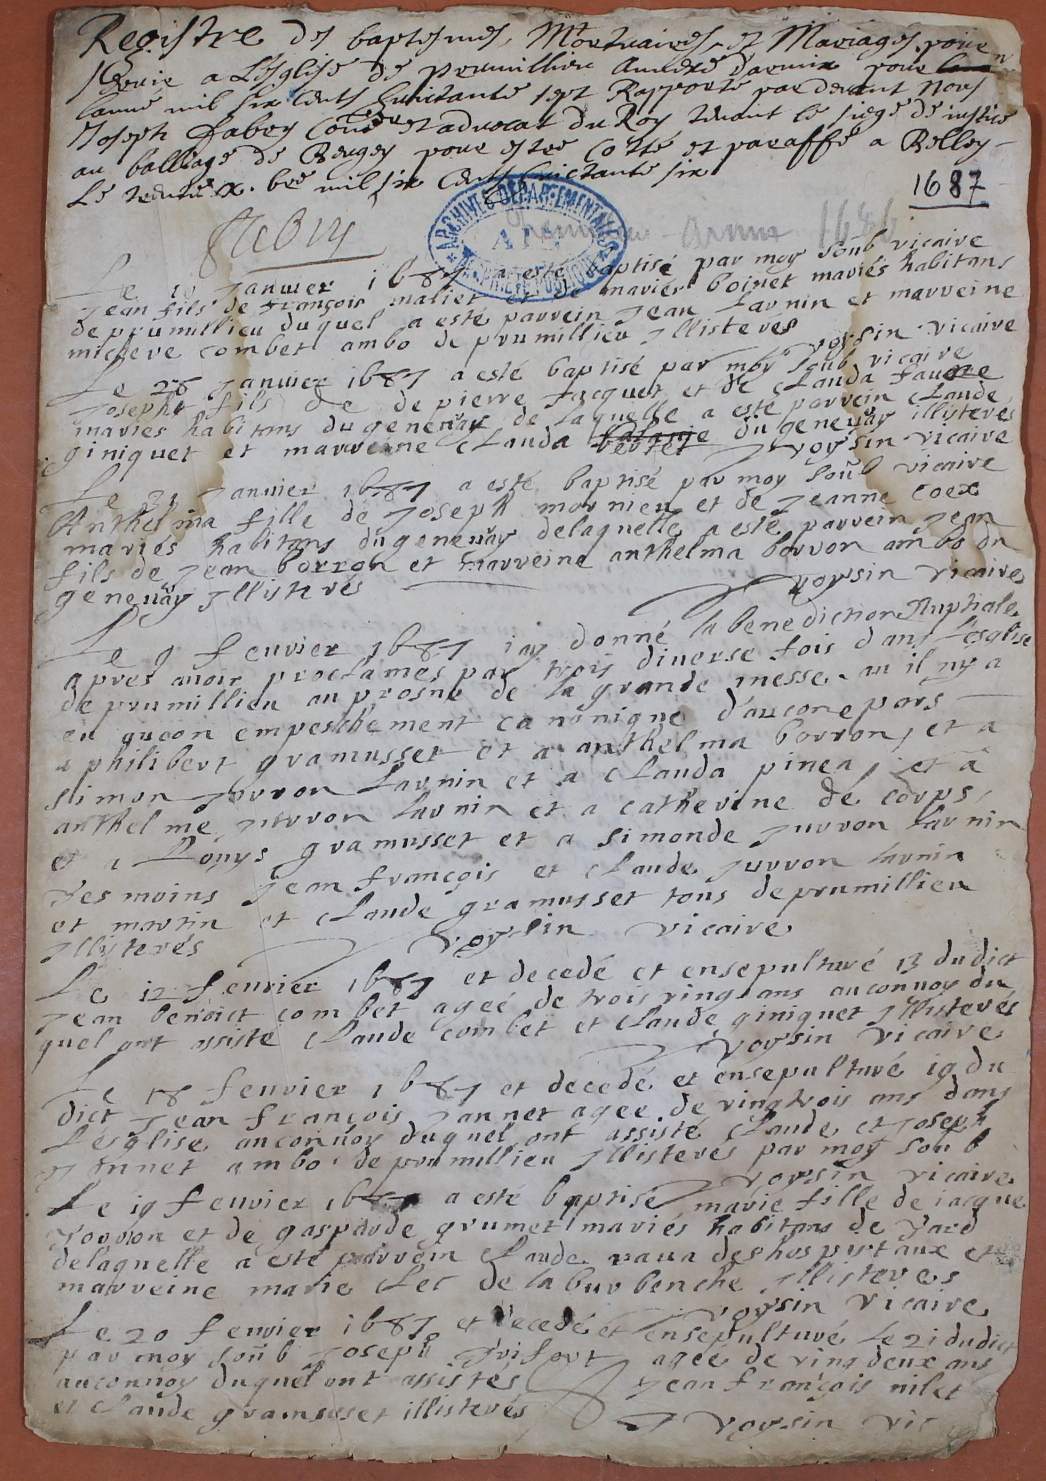 Registre des baptesmes, Mortuaires, et Mariages pour
servir a L'esglise de prumillieu annexe d'armix pour
lanne mil six cents huictante sept Rapporté par devant Nous
Joseph fabry Conser et advocat du Roy tenant le siege de justice
au balliage de Beugey pour estre Cotté et paraffé a Belley
Le trente x.bre mil six cents huictante six
1687
ARCHIVES DEPARTEMENTALES AIN PROPRIETE PUBLIQUE
Premillieu Armix 1686
Le 10 Janvier 1687 a esté baptisé par moy soub vicaire
Jean fils de françois maliet et de boinet mariés habitans
de prumillieu duquel a esté parrein Jean Larnin et marreine
micheve combet ambo de prumillieu Illisterés voysin vicaire
Le 28 Janvier 1687 a esté baptisé par moy soub vicaire
Joseph fils de de pierre Jacquet et de Clauda faure
mariés habitans du genevay de laquelle a esté parrein Claude
giniquet et marreine Clauda du genevay illisterés
voysin vicaire
Le 31 Janvier 1687 a esté baptisé par moy soub vicaire
Anthelma fille de Joseph mornieu et de Jeanne Coex
mariés habitans du genevay delaquelle a esté parrein Jean
fils de Jean borron et marreine anthelma borron ambo du
genevay Illisterés voysin vicaire
Le 9 fevrier 1687 jay donné la benediction Nuptiale
apres avoir proclamés par trois diverse fois dans l'esglise
de prumillieu au prosne de la grande messe au il ny a
eu aucon empeschement canonique d'aucone pars
a philibert gramusset et a anthelma borron, et a
simon Jurron Larnin et a Clauda pinea, et a
anthelme Jurron Larnin et a catherine de corps,
et a Lonys gramusset et a simonde Jurron Larnin
Tesmoins Jean françois et Claude Jurron Larnin
et martin et Claude gramusset tous de prumillieu
Illisterés voysin vicaire
Le 12 fevrier 1687 et decedé et ensepulturé 13 dudict
Jean benoict combet ageé de trois vingt ans au convoy du
quel ont assisté Claude Combet et Claude giniquet Illisterés
voysin vicaire
Le 18 fevrier 1687 et decedé et ensepulturé 19 du
dict Jean françois Jannet agee de vingtrois ans dans
L'esglise au convoy duquel ont assisté Claude et Joseph
Jannet ambo de prumillieu Illisterés par moy soub
voysin vicaire
Le 19 fevrier 1687 a esté baptisé marie fille de iacque
et de gasparde grumet mariés habitans de
delaquelle a esté parrein Claude des hospitaux et
marreine marie Lec de la burbenche Illisteres
voysin vicaire
Le 20 fevrier 1687 et decedé et ensepulturé Le 21 dudict
par moy soub Joseph agee de ving deux ans
au convoy duquel ont assistés Jean françois nilet
et Claude gramusset illisterés voysin vic